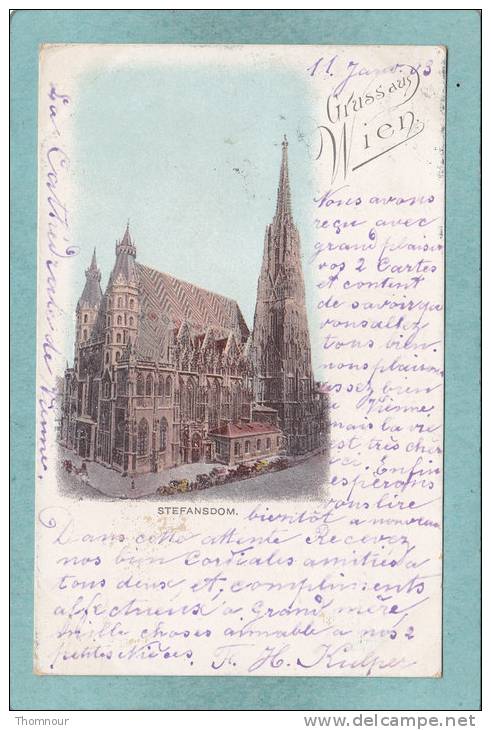 11 Janv 03
Gruss aus
Wien.
La Cathédrale de Vienne.
Nous avons
reçu avec
grand plaisir
vos 2 Cartes
et content
de savoir qu
vous allez
tous bien.
nous plaisons
assez bien
a Vienne,
mais la vie
est très cher
ici. Enfin
esperons
vous lire
STEFANSDOM.
bientôt a nouveau
Dans cette attente Recevez
nos bien Cordiales amitiés a
tous deux et compliments
affectueux a grand mère
mille choses aimable a nos 2
petites Nièces. F. H. Kulper
Thomnour
www.delcampe.net